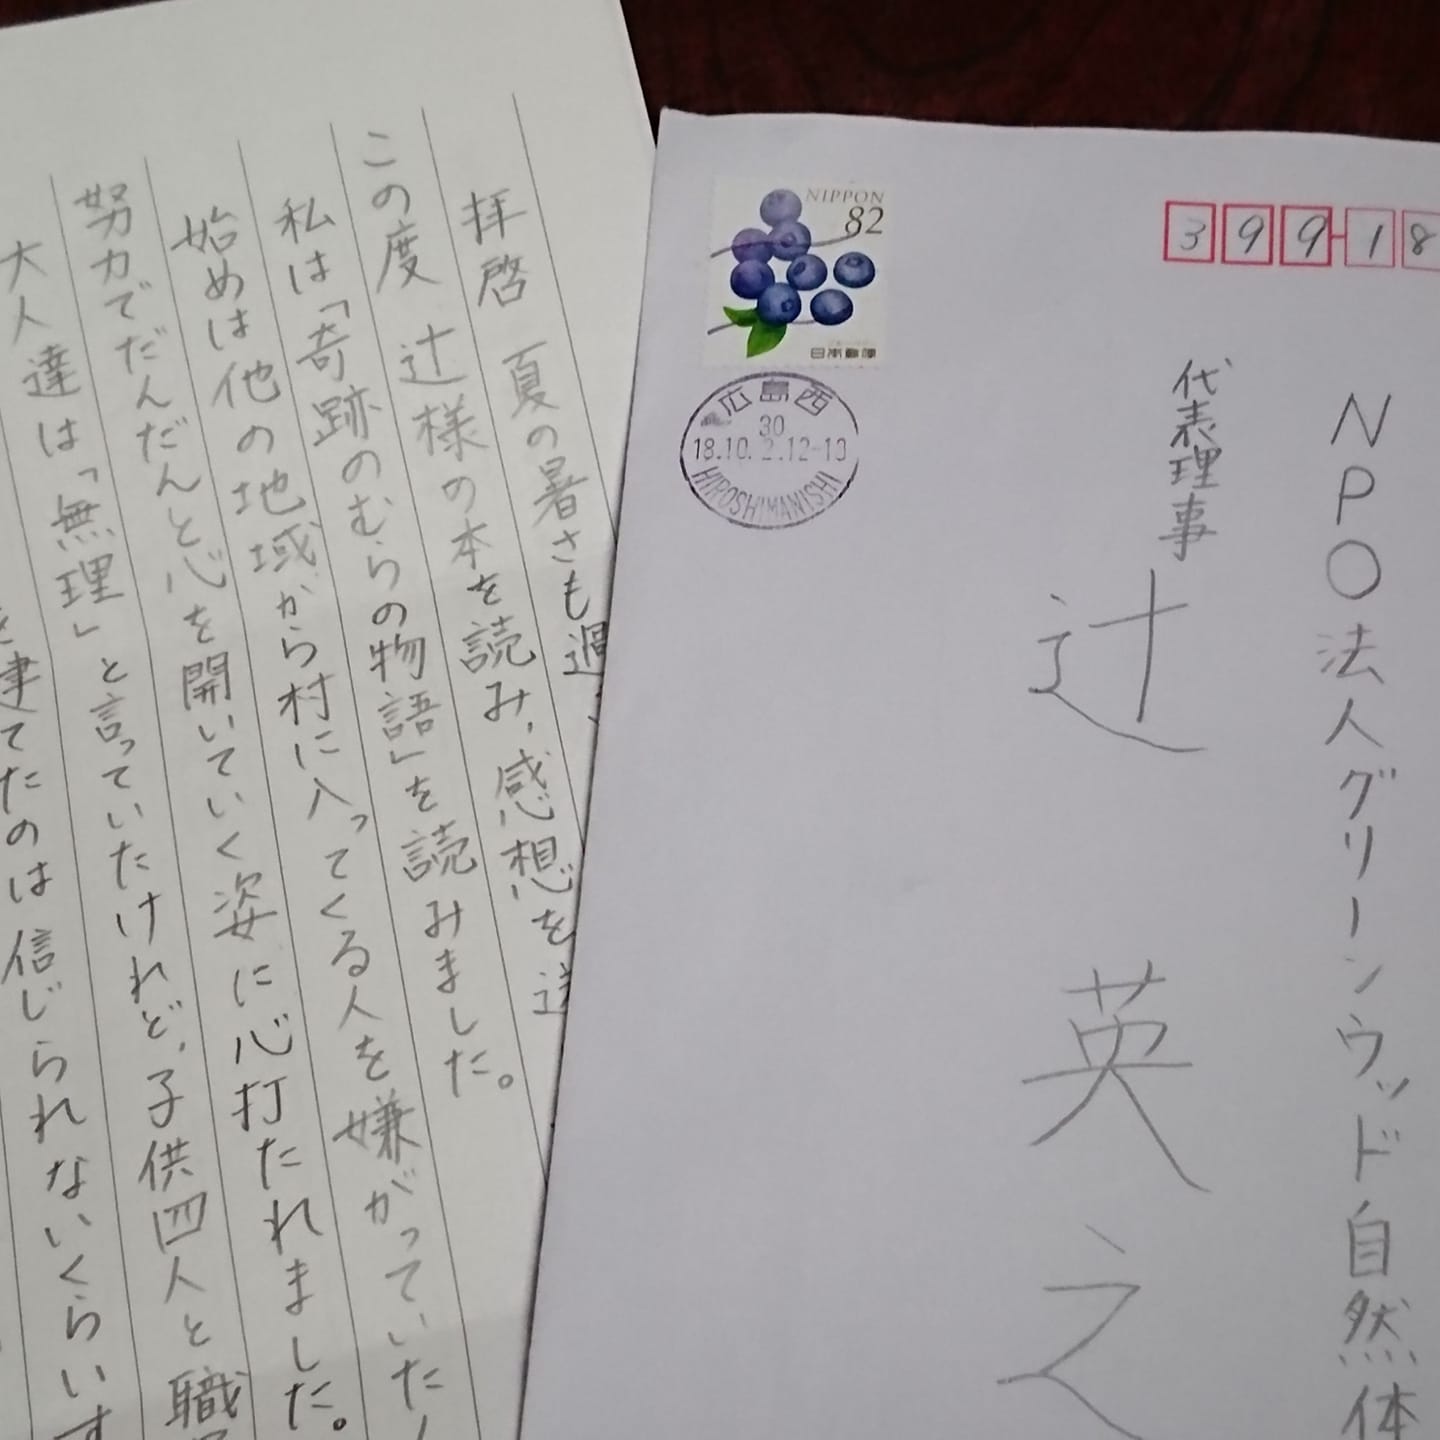 拝啓 夏の暑さも過
この度 辻様の本を読み、感想を送
私は「奇跡のむらの物語」を読みました。
始めは他の地域から村に入ってくる人を嫌がっていた
努力でだんだんと心を開いていく姿に心打たれました。
大人達は「無理」と言っていたけれど、子供四人と職
建てたのは信じられないくらいす
NIPPON
82
日本郵便
広島西
30
18.10.2.12-13
HIROSHIMANISHI
399-18
NPO法人グリーンウッド自然体
代表理事
辻 英之